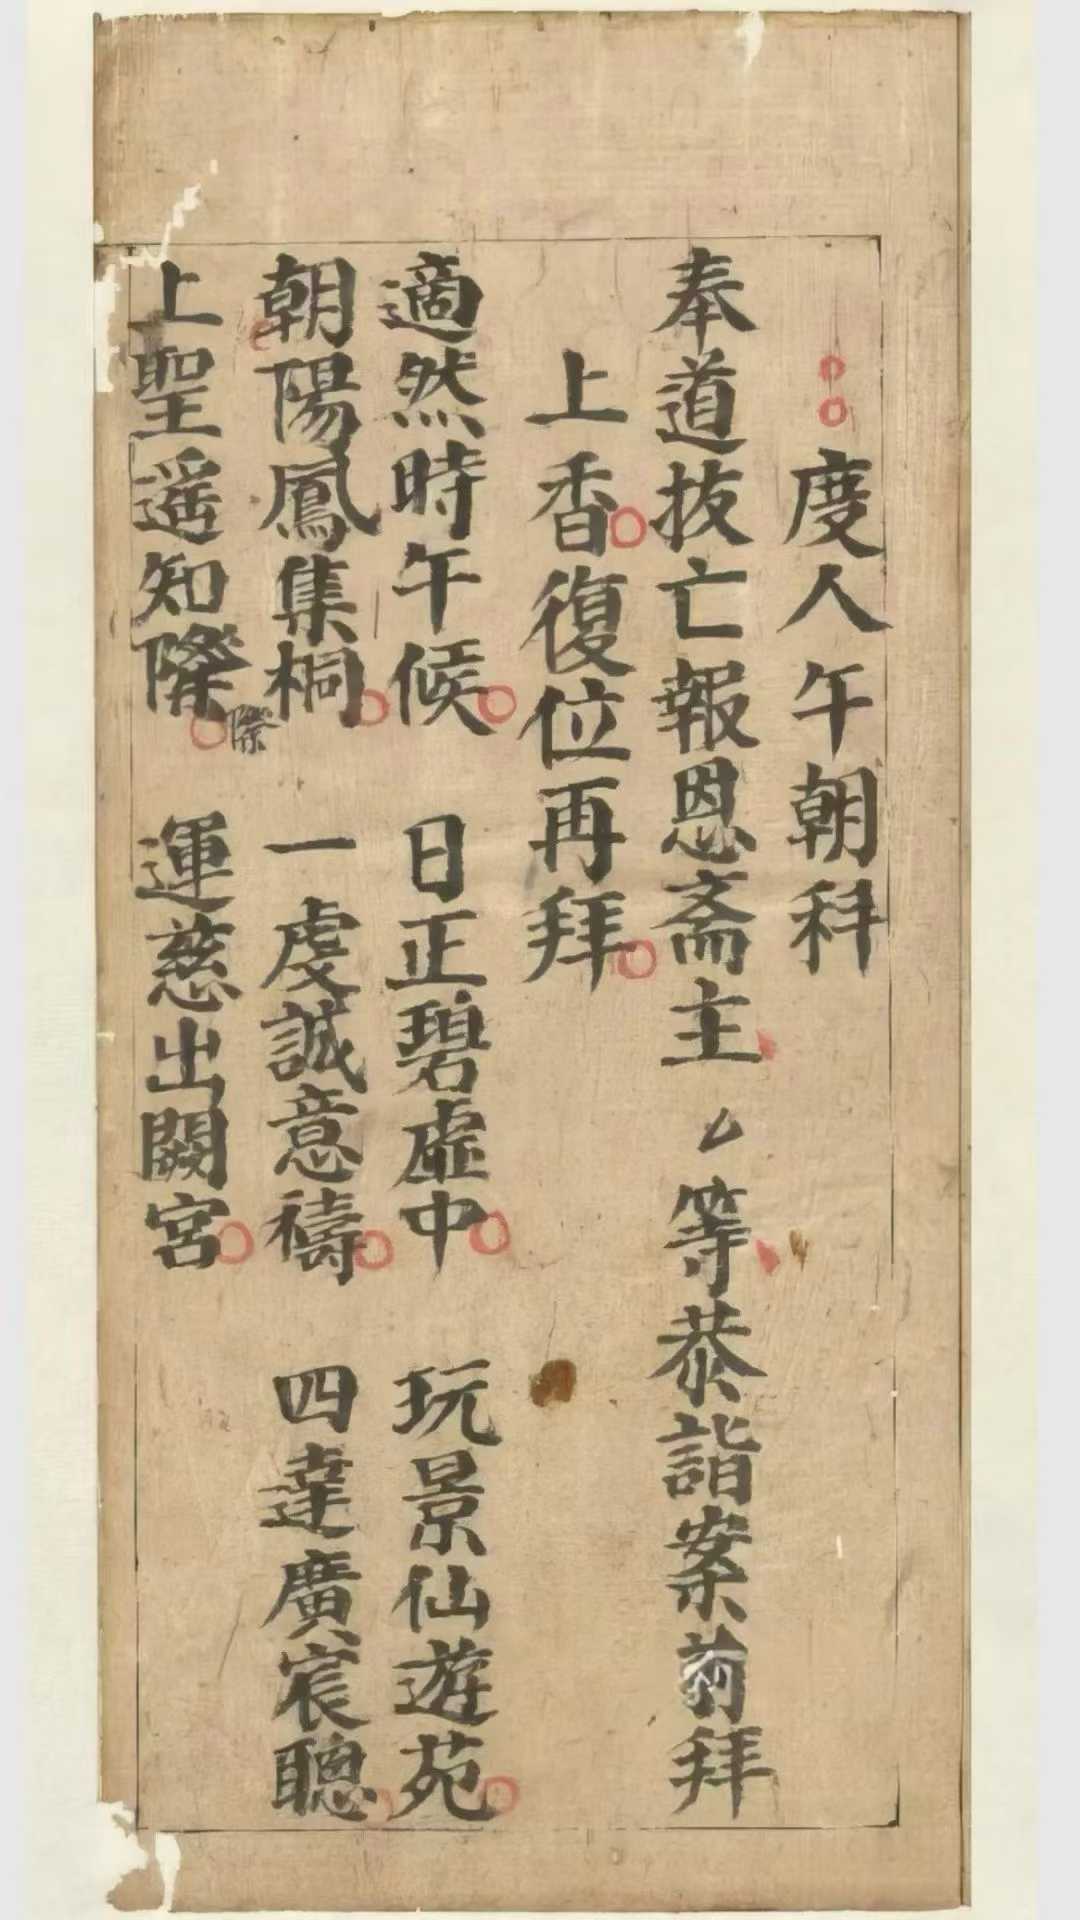 度人午朝科
奉道拔亡報恩斋主 ム 等恭詣案前拜
上香復位再拜
適然時午候 日正碧虛中 玩景仙遊苑
朝陽鳳集桐 一虔誠意禱 四達廣宸聰
上聖遥知際 運慈出闕宮
際